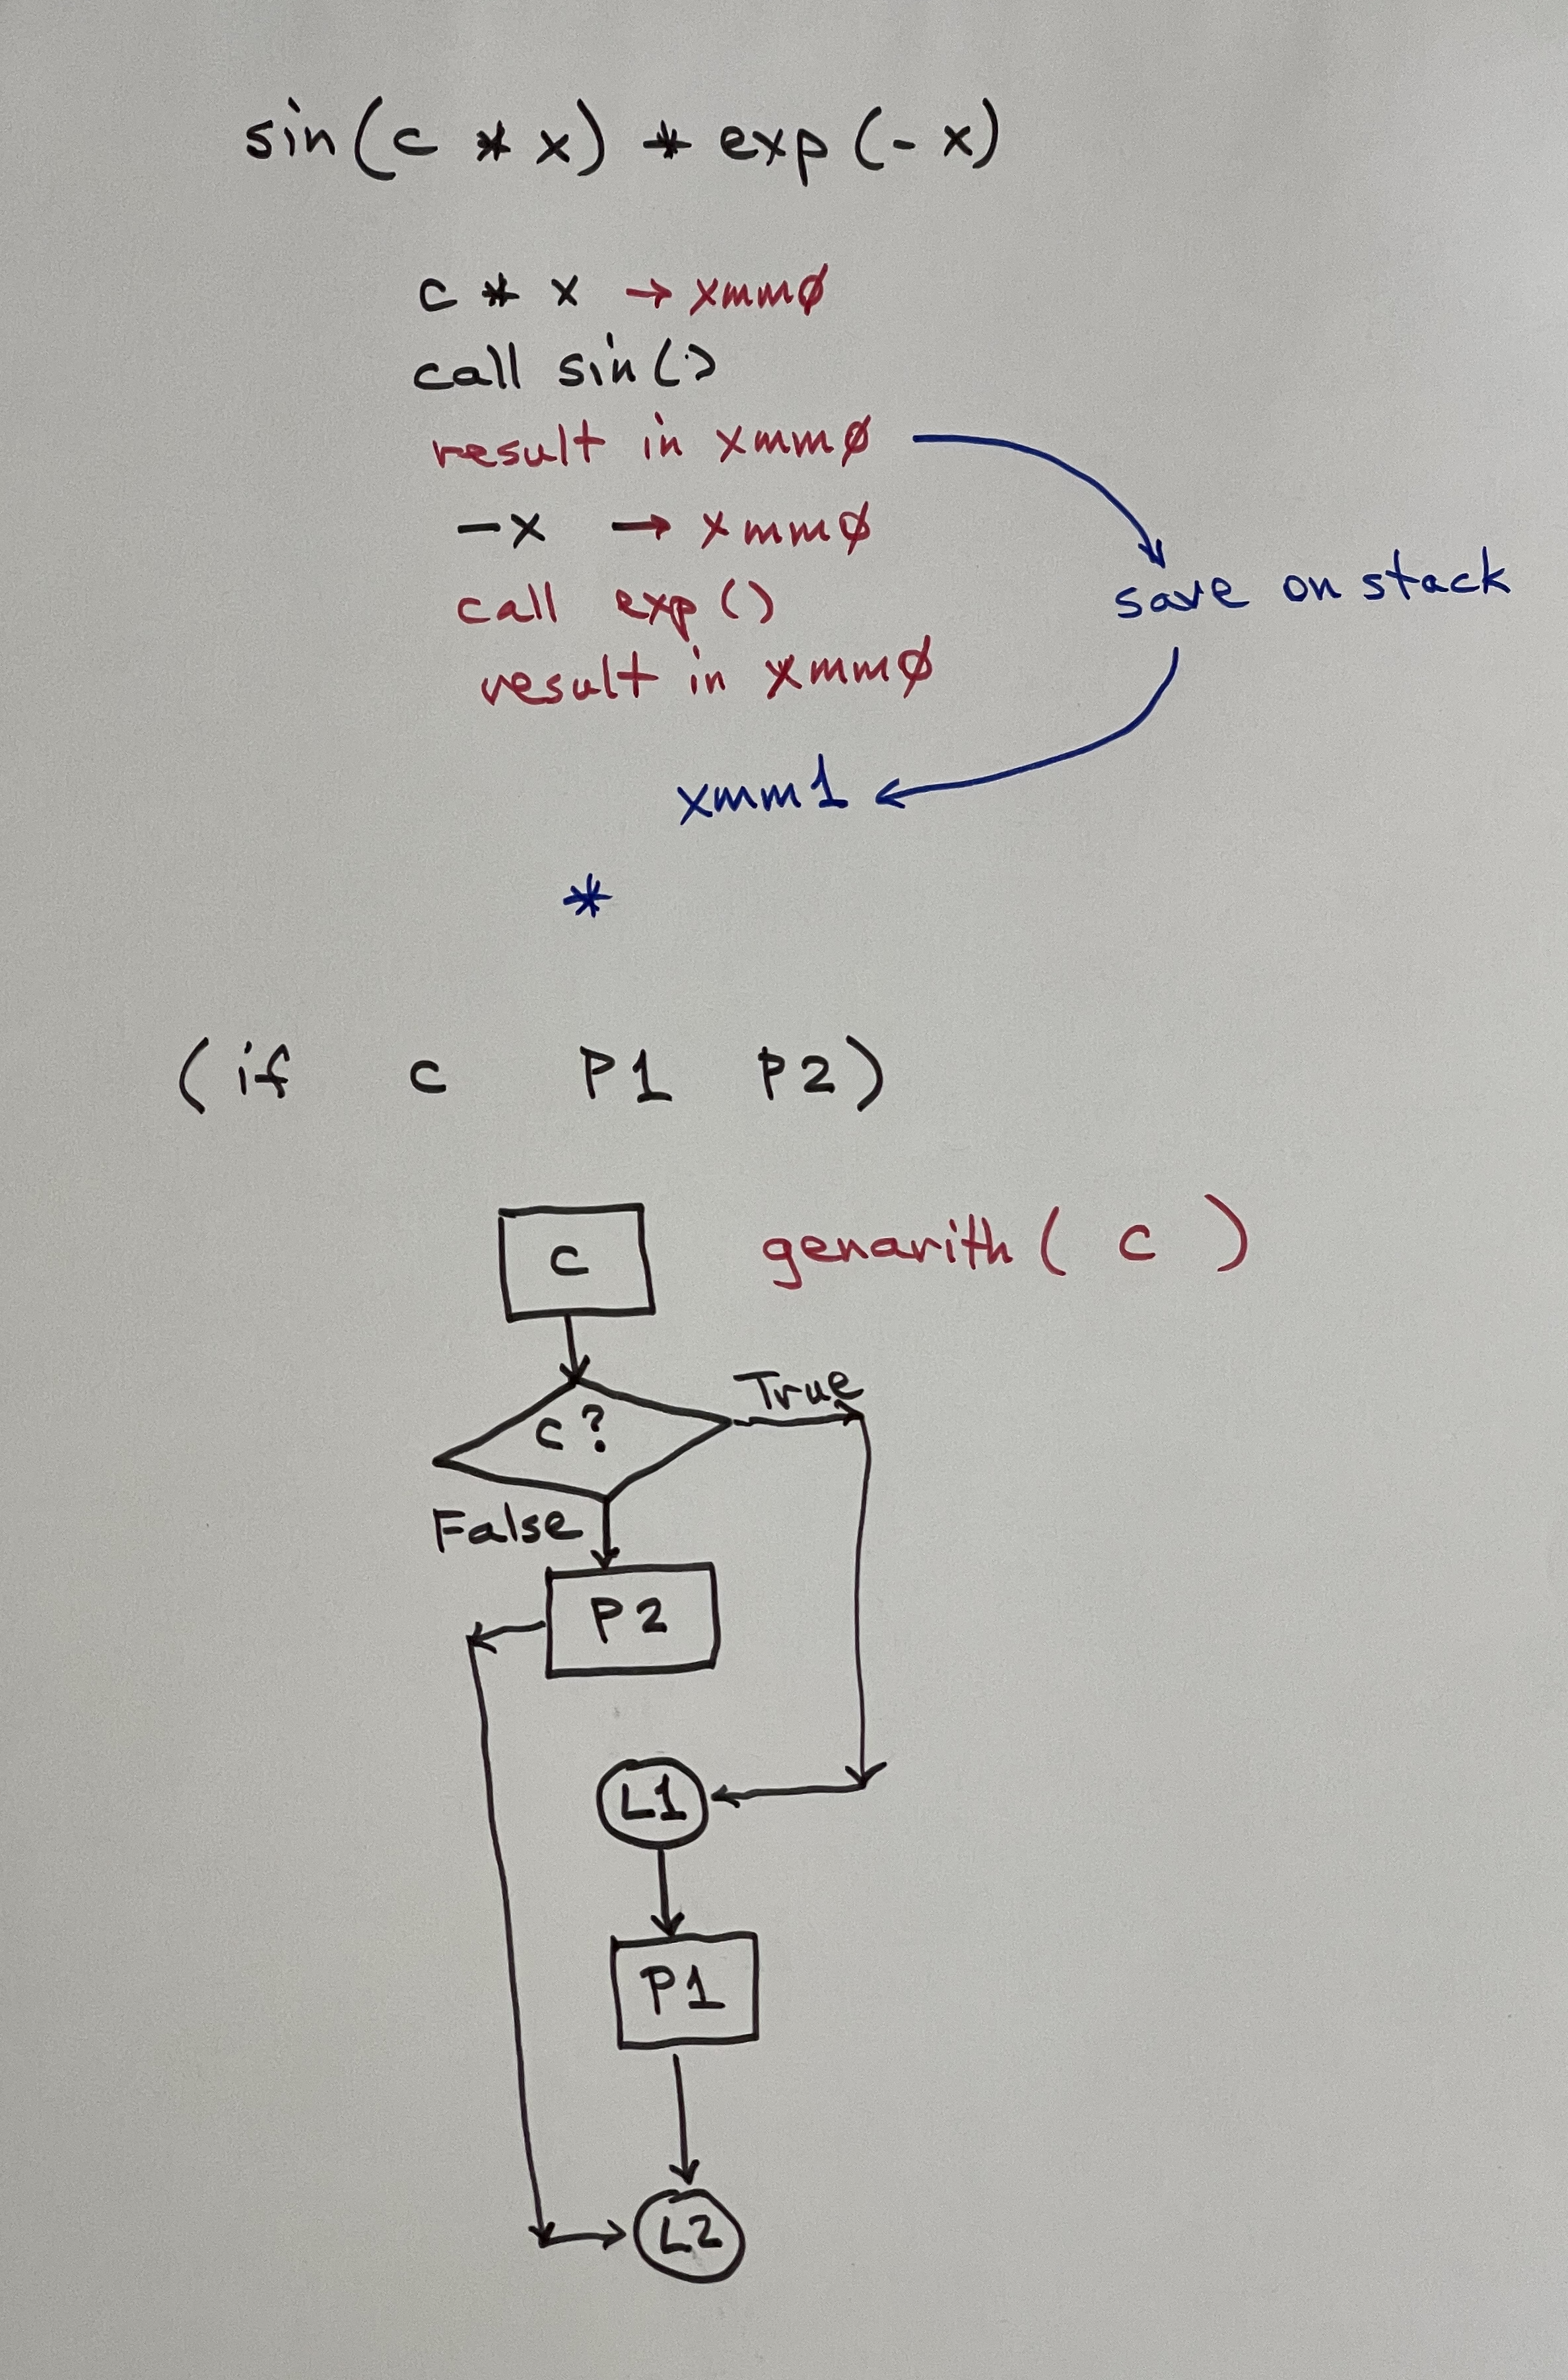 sin(c * x) * exp(-x)
c * x → xmm0
call sin()
result in xmm0
-x → xmm0
call exp()
save on stack
result in xmm0
xmm1
*
(if c P1 P2)
c
genarith( c )
c?
True
False
P2
L1
P1
L2